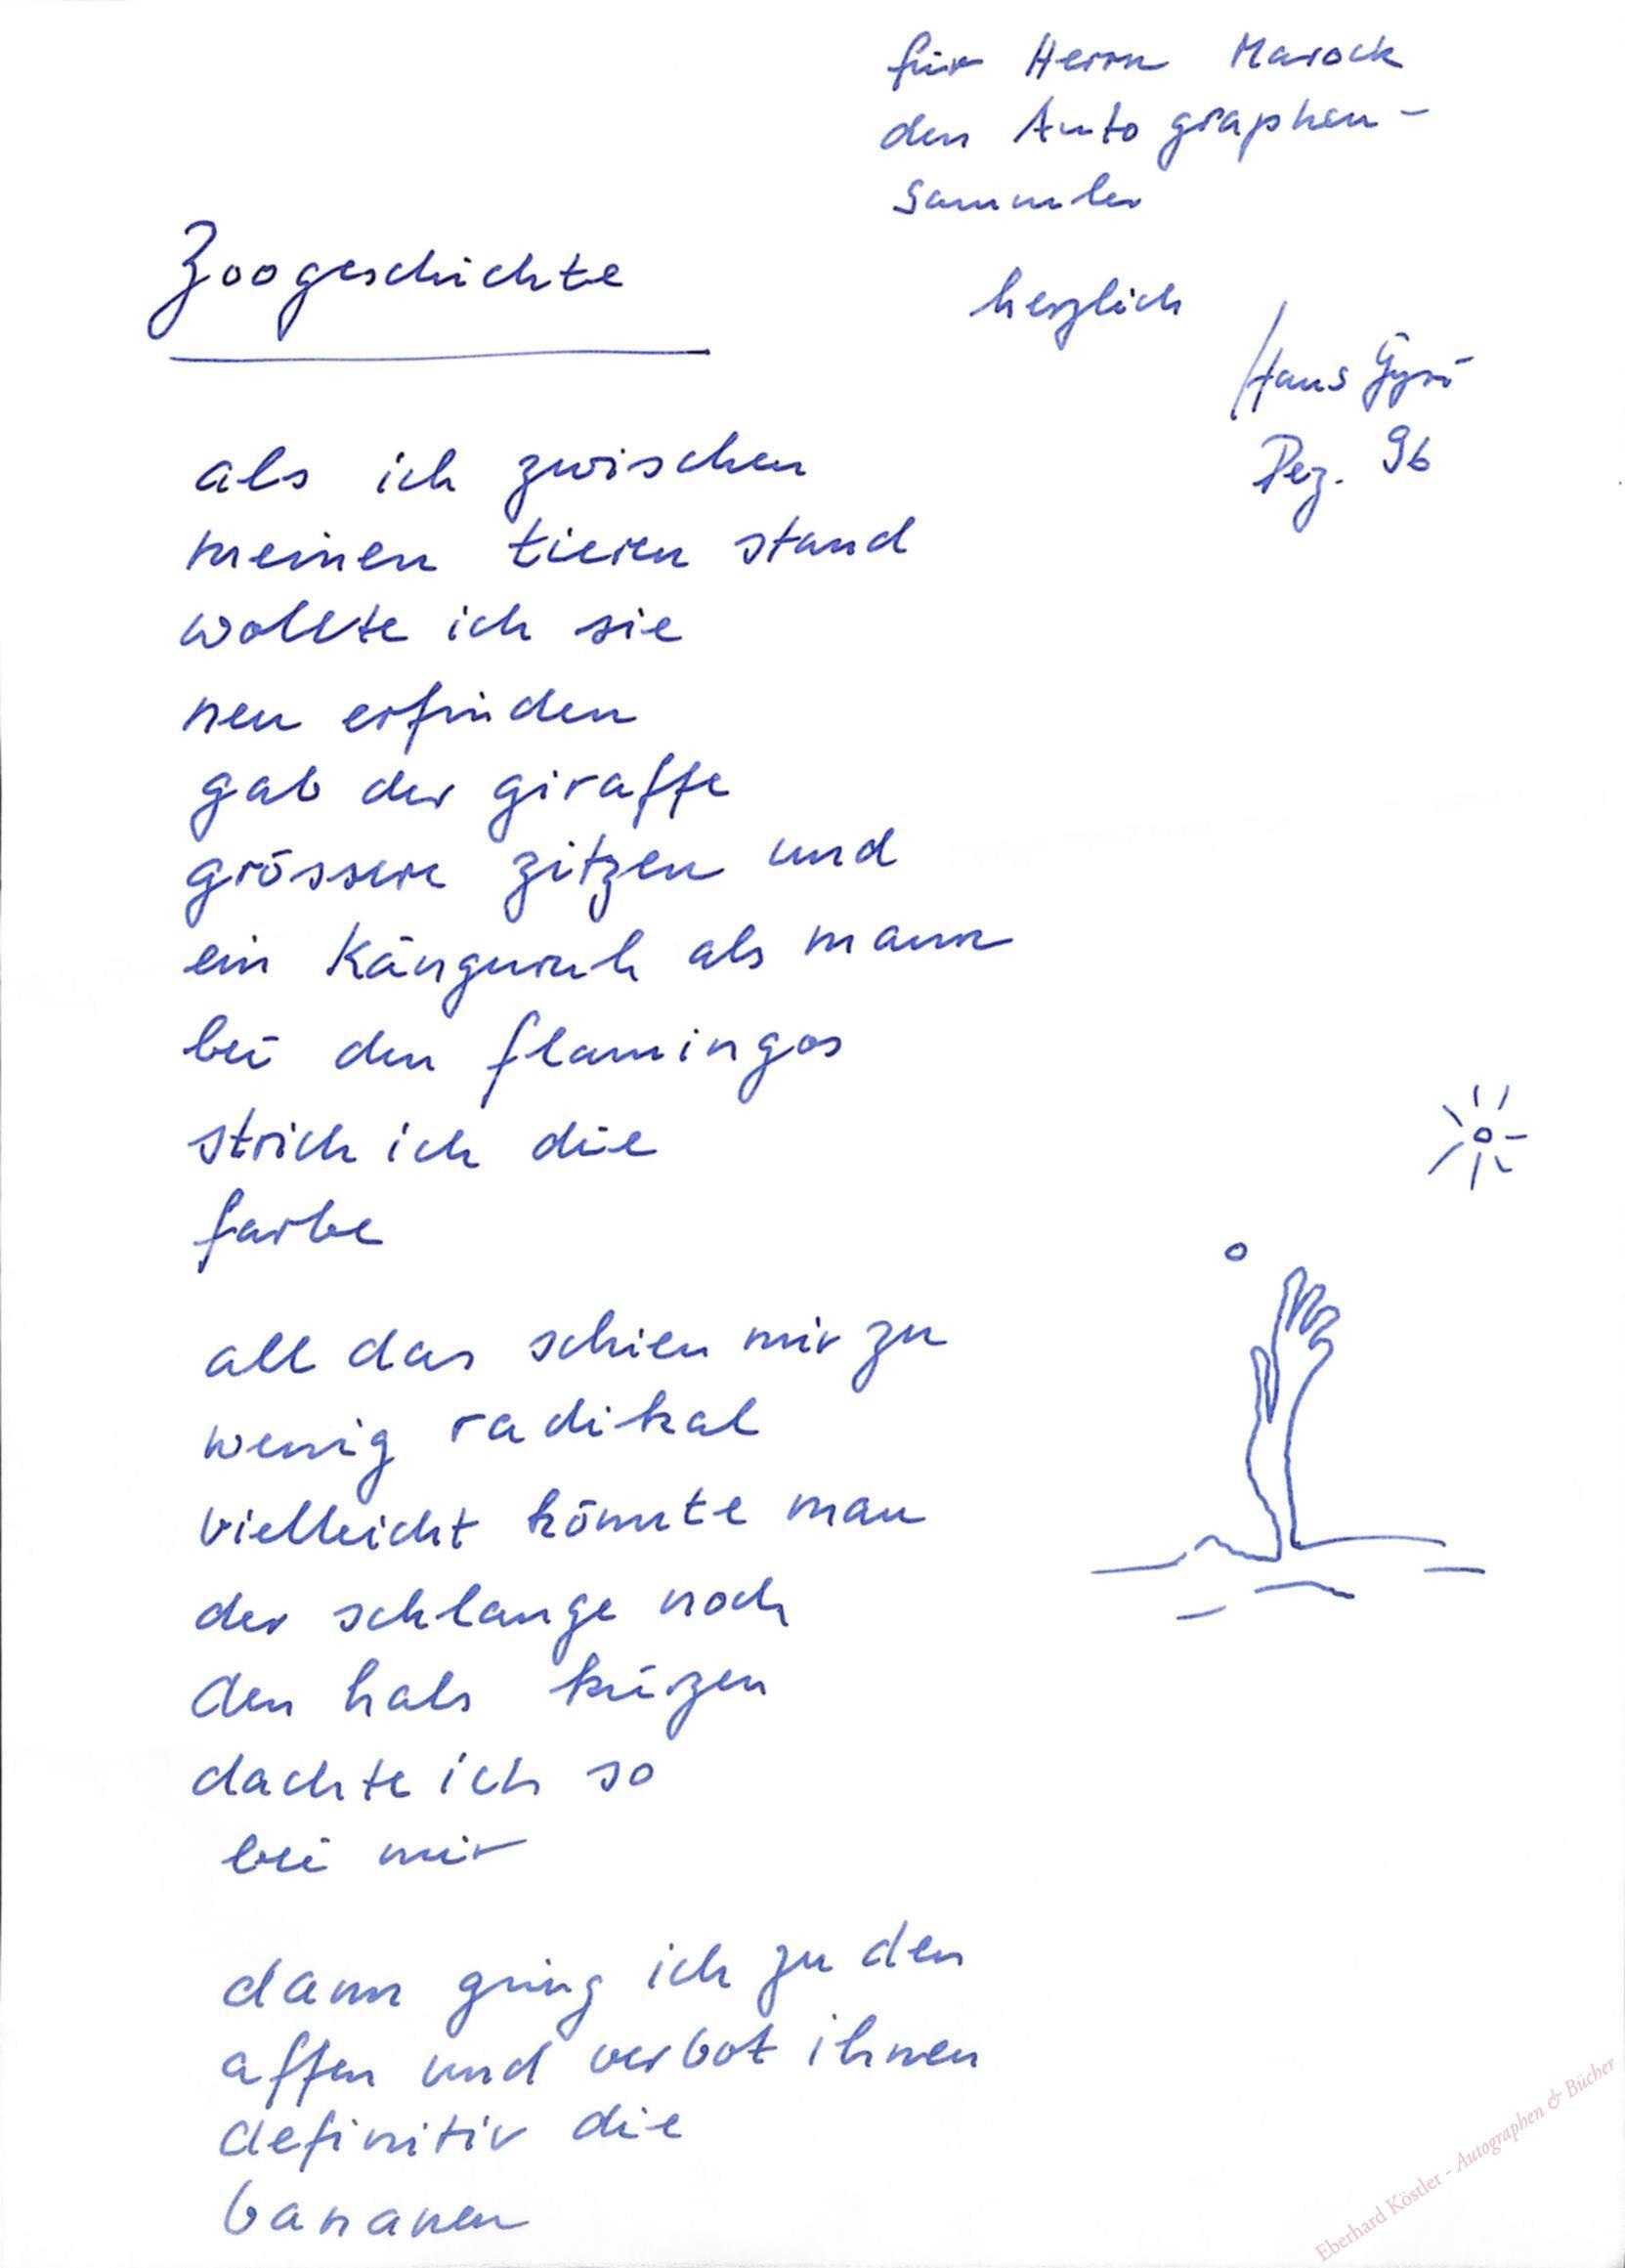 für Herrn Marock
den Autographen-
sammler
herzlich
Hans Gysi
Dez. 96
Zoogeschichte
als ich zwischen
meinen tieren stand
wollte ich sie
neu erfinden
gab der giraffe
grössere zitzen und
ein känguruh als mann
bei den flamingos
strich ich die
farbe
all das schien mir zu
wenig radikal
vielleicht könnte man
der schlange noch
den hals kürzen
dachte ich so
bei mir
dann ging ich zu den
affen und verbot ihnen
definitiv die
bananen
Eberhard Köstler - Autographen & Bücher